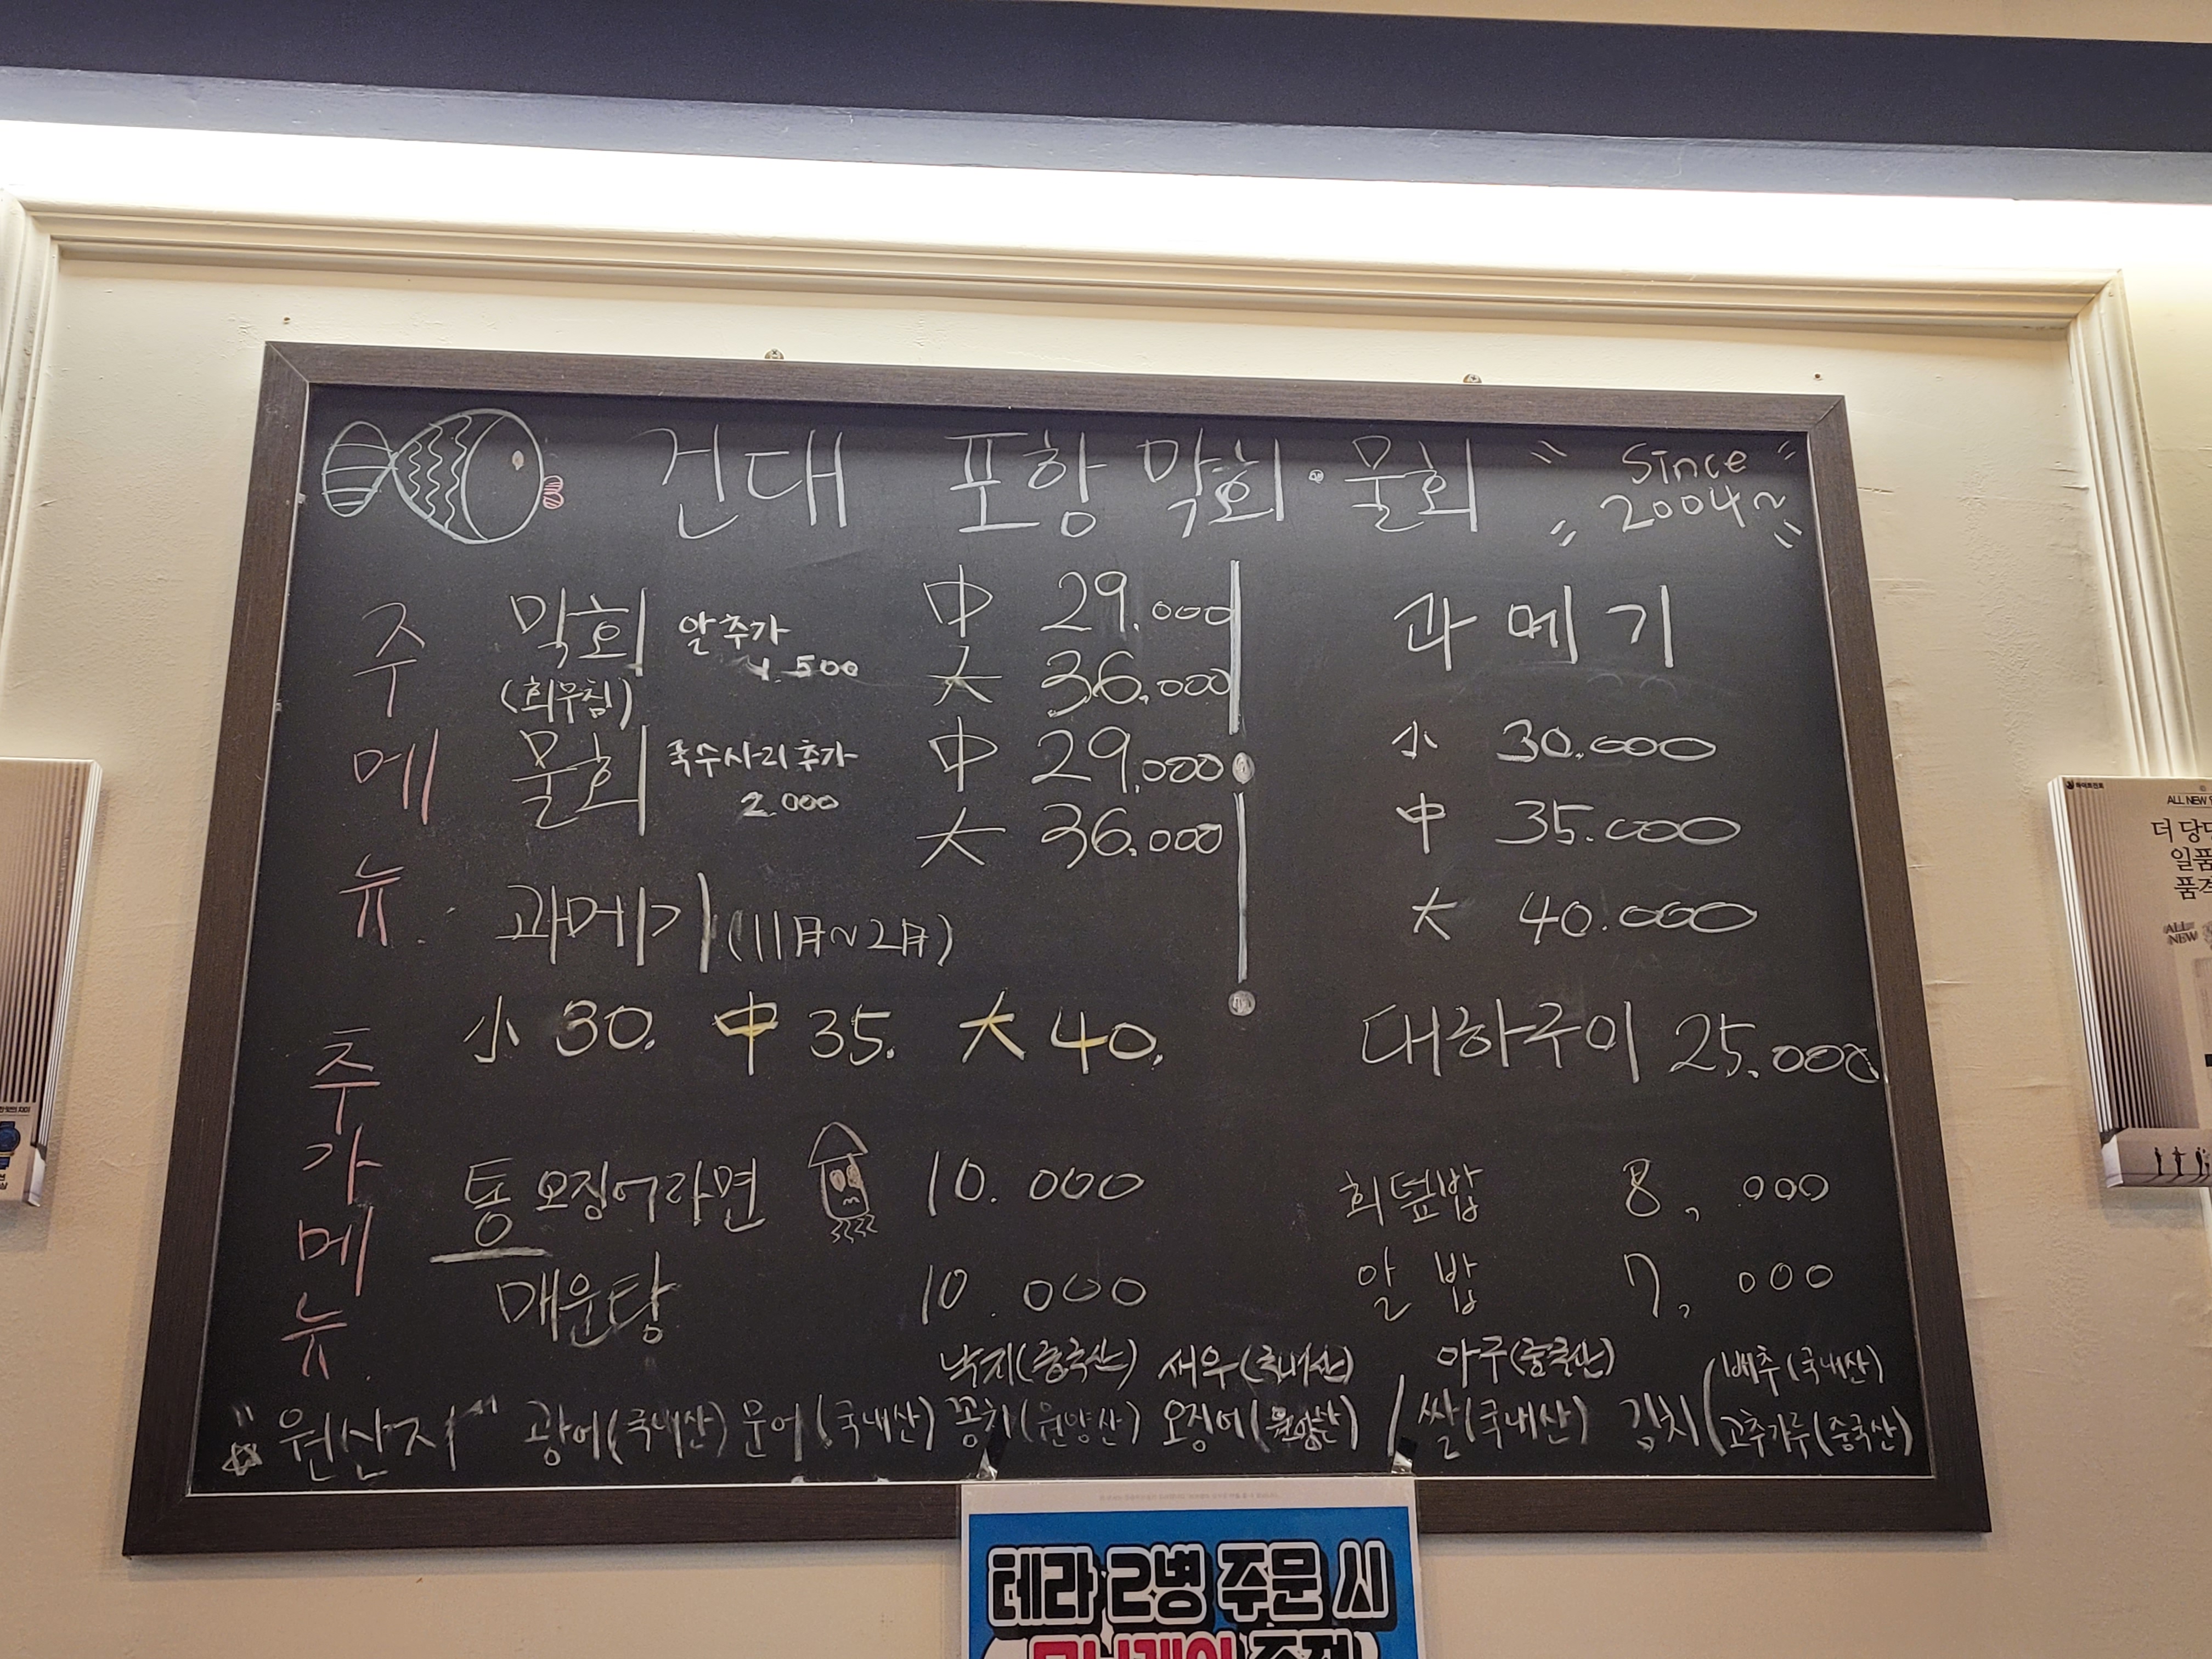 건대 포항 막회·물회 " Since 2004~ "
주메뉴.
막회 알추가 1.500 中 29.000
(회무침) 大 36.000
물회 국수사리추가 2.000 中 29.000
大 36.000
과메기 (11月~2月)
小 30. 中 35. 大 40.
과메기
小 30.000
中 35.000
大 40.000
대하구이 25.000
추가메뉴.
통오징어라면 10.000
매운탕 10.000
회덮밥 8,000
알밥 7,000
낙지(중국산) 새우(국내산) 아구(중국산) 배추(국내산)
☆ "원산지" 광어(국내산) 문어(국내산) 꽁치(원양산) 오징어(원양산) / 쌀(국내산) 김치 ( 고추가루(중국산)
테라 2병 주문 시
더 당
일품
품격
ALL NEW
하이트진로
ALL NEW